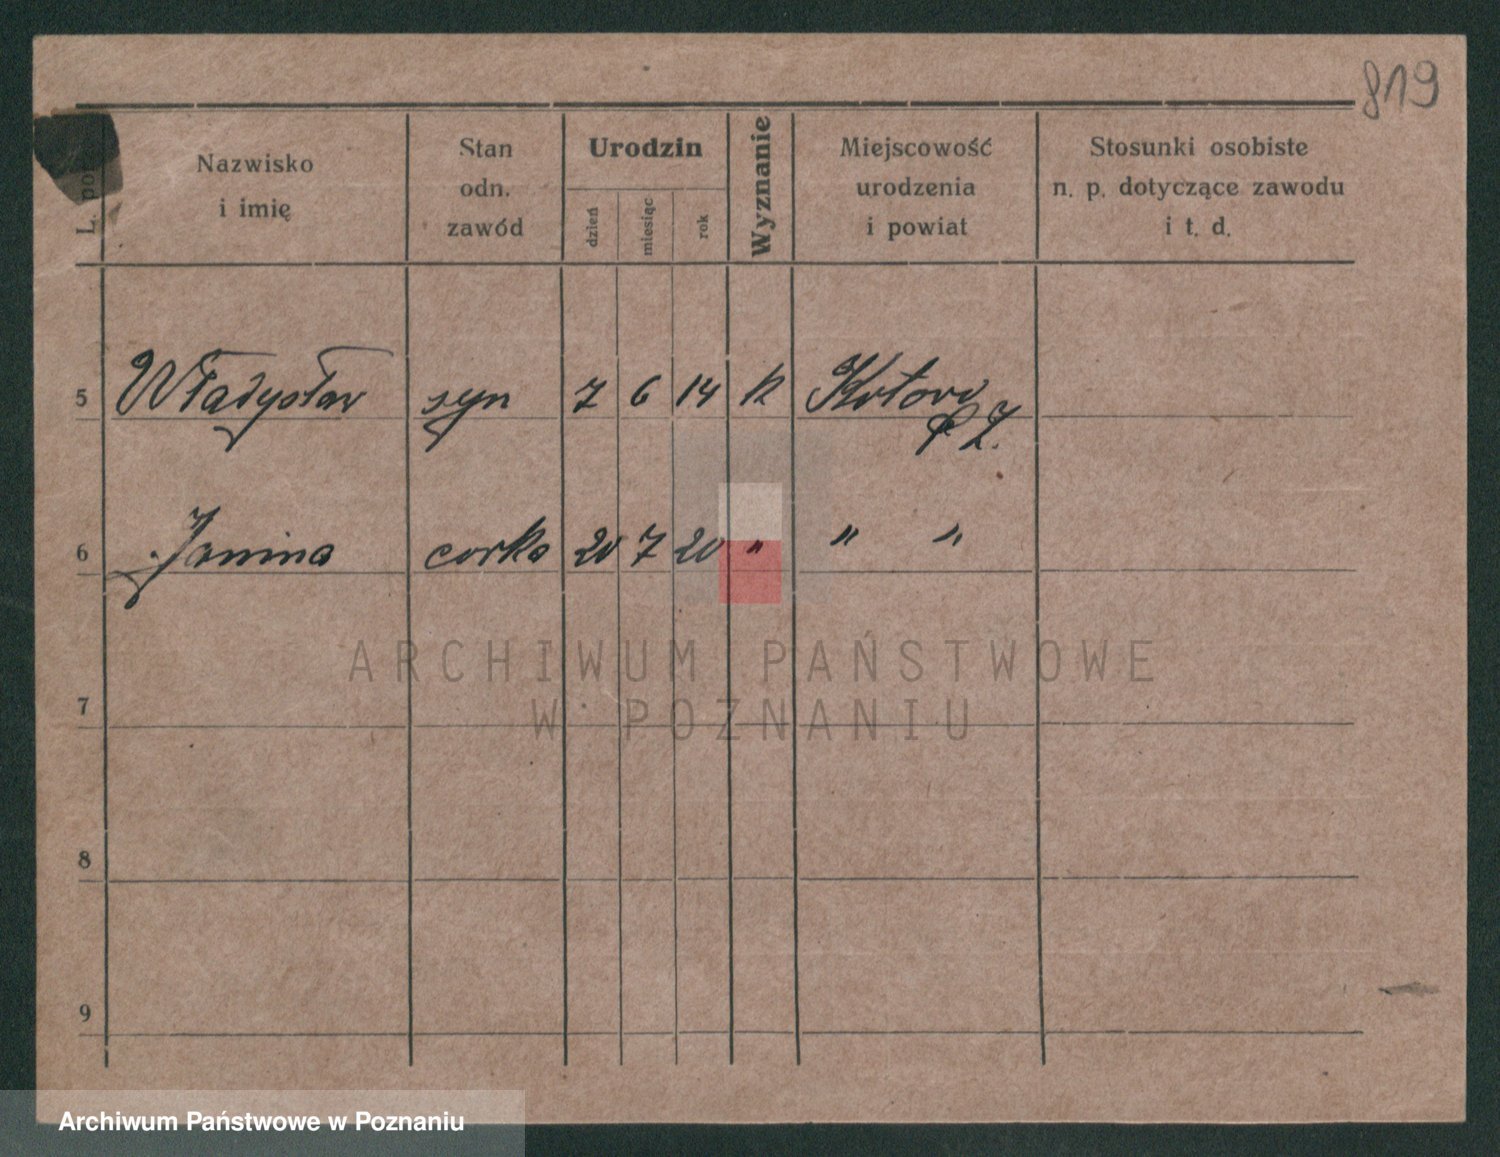 819
L. porz.
Nazwisko
i imię
Stan
odn.
zawód
Urodzin
dzień
miesiąc
rok
Wyznanie
Miejscowość
urodzenia
i powiat
Stosunki osobiste
n. p. dotyczące zawodu
i t. d.
5 Władysław syn 7 6 14 k Kotowo
6 Janina corka 20 7 20 " " "
ARCHIWUM PAŃSTWOWE
W POZNANIU
7
8
9
Archiwum Państwowe w Poznaniu